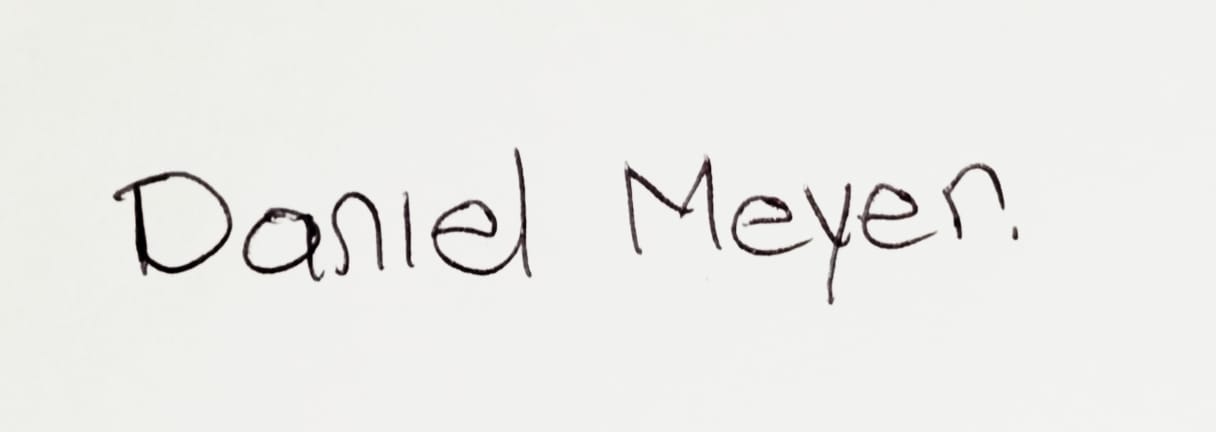 Daniel Meyer.